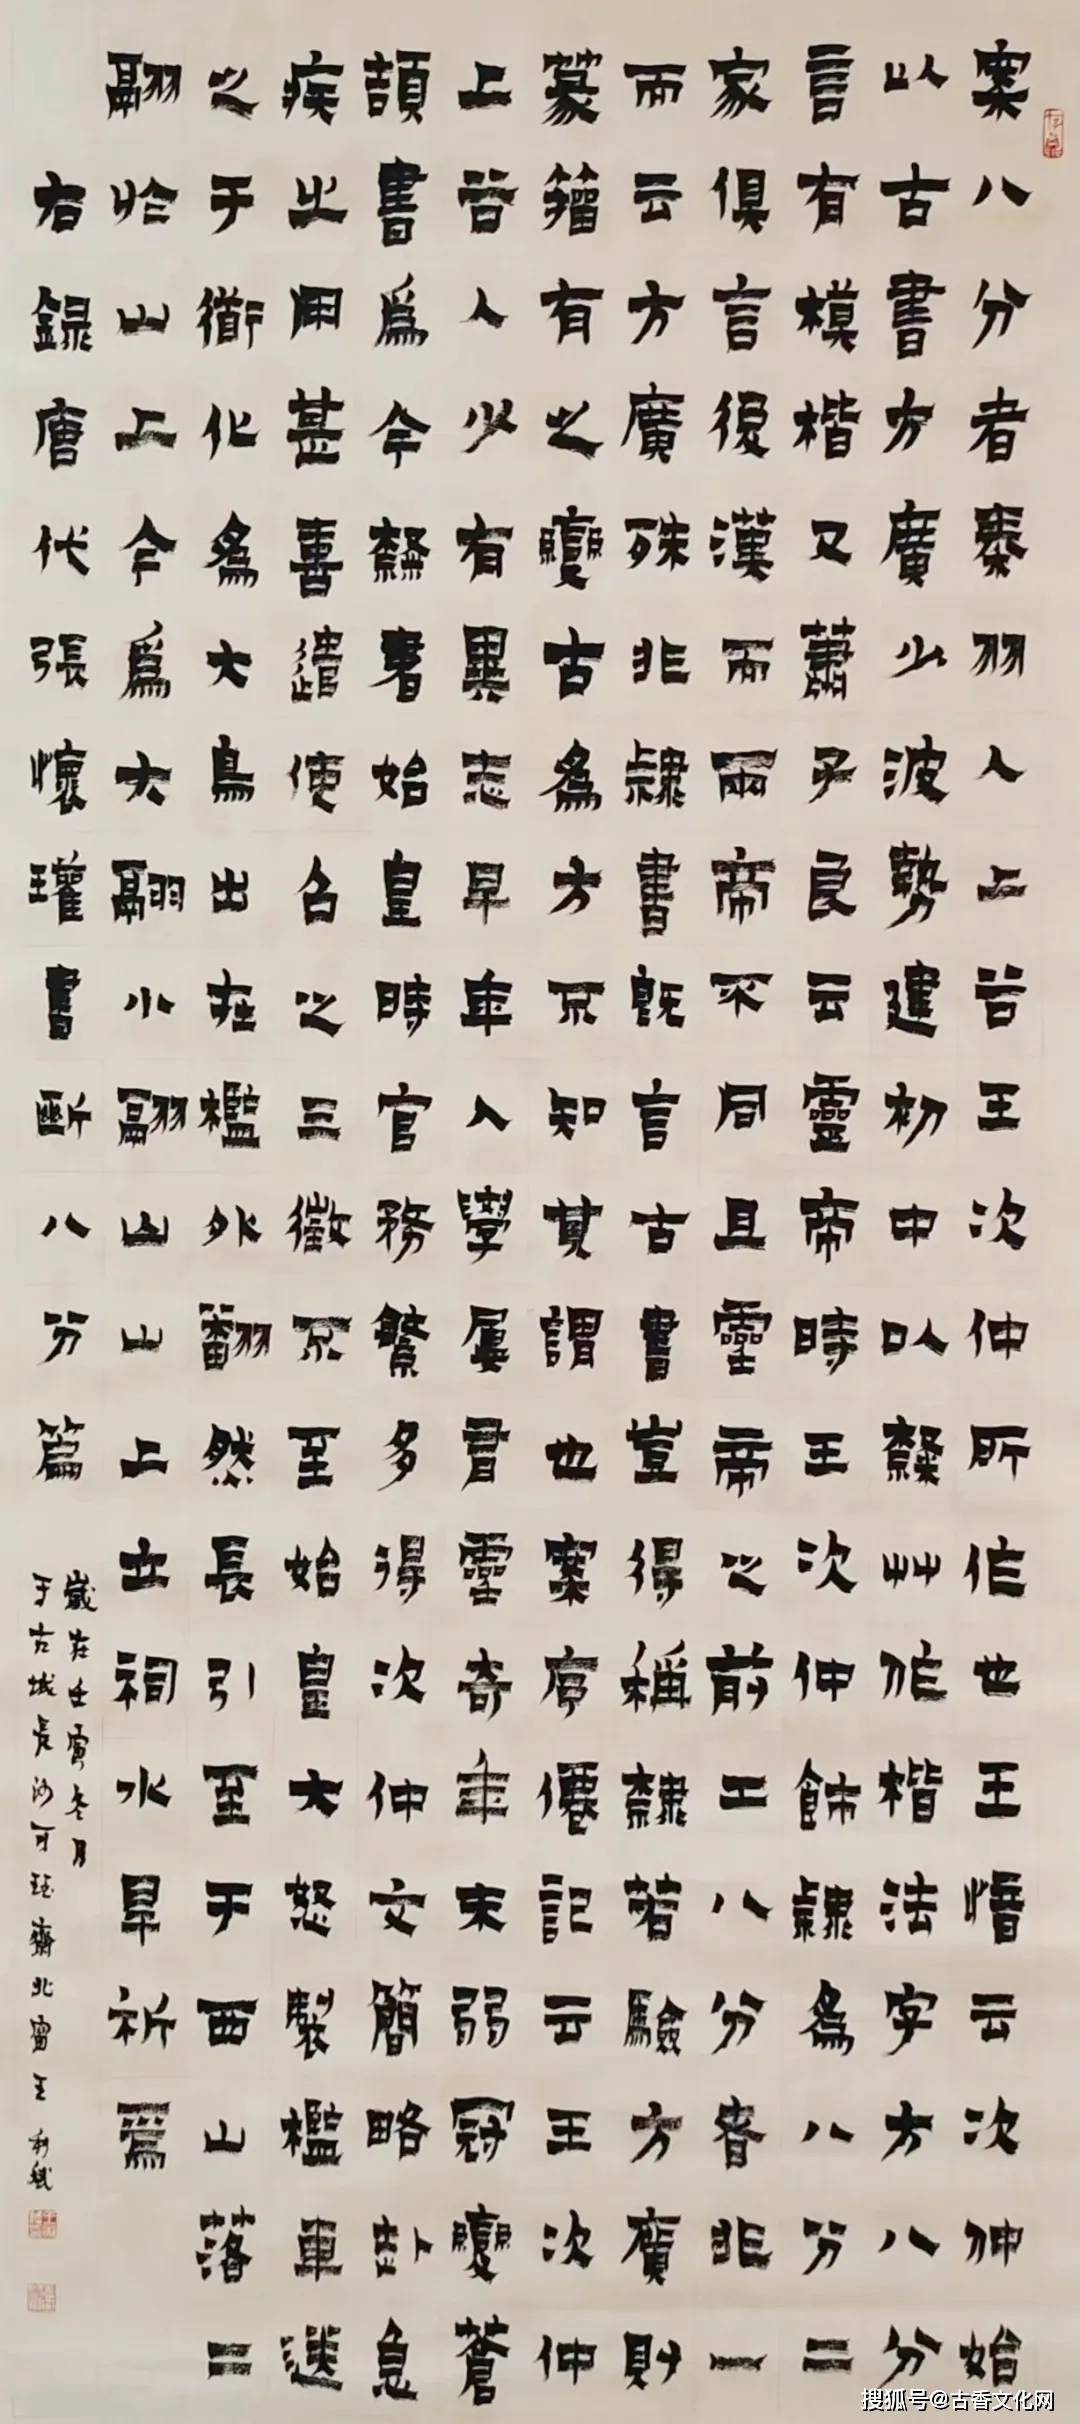 案八分者秦羽人上谷王次仲所作也王愔云次仲始
以古書方廣少波勢建初中以隸艸作楷法字方八分
言有模楷又蕭子良云靈帝時王次仲飾隸為八分二
家俱言後漢而兩帝不同且靈帝之前工八分者非一
而云方廣殊非隸書既言古書豈得稱隸若驗方廣則
篆籀有之變古為方不知其謂也案序僊記云王次仲
上谷人少有異志早年入學屢有靈奇年未弱冠變蒼
頡書為今隸書始皇時官務繁多得次仲文簡略赴急
疾之用甚喜遣使召之三徵不至始皇大怒製檻車送
之于衟化為大鳥出在檻外翻然長引至于西山落二
翮於山上今為大翮小翮山山上立祠水旱祈焉
右錄唐代張懷瓘書斷八分篇
歲在壬寅冬月
于古城長沙可珏齋北窗王利斌
搜狐号@古香文化网